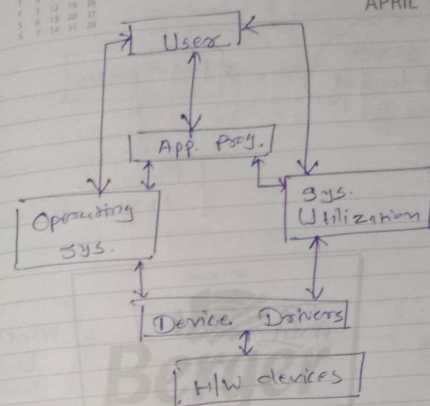 APRIL
User
App. Prog.
Operating
Sys.
Sys.
Utilization
Device Drivers
H/W devices
Berger